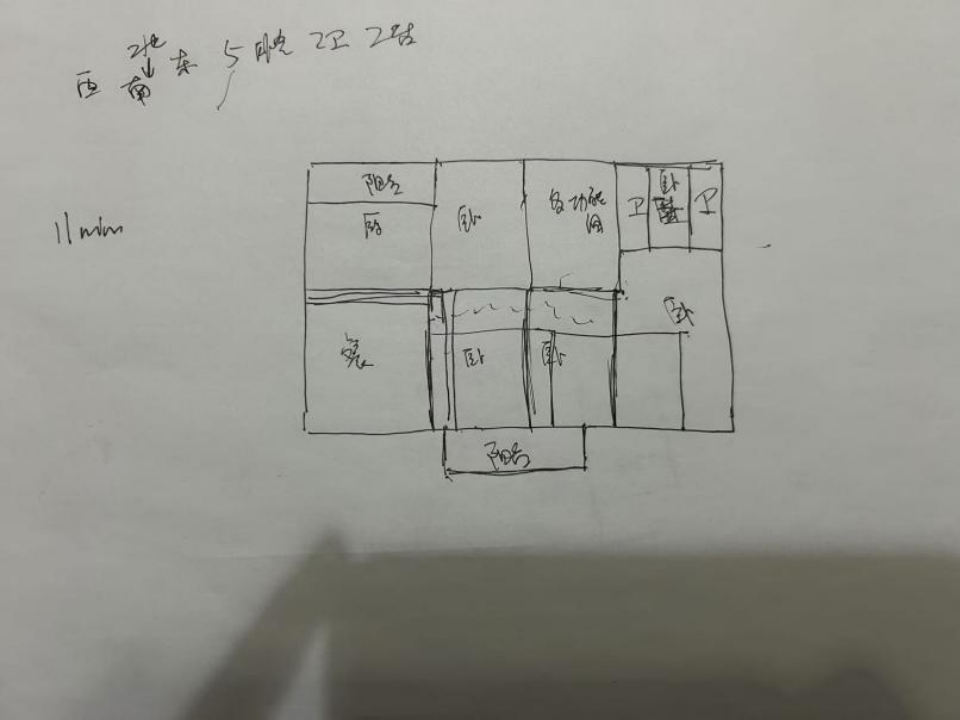 北
西 南 东 5卧室 2卫 2站
11mm
阳台
厨 卧 多功能间 卫 卧 卫
卧
客 卧 卧
阳台